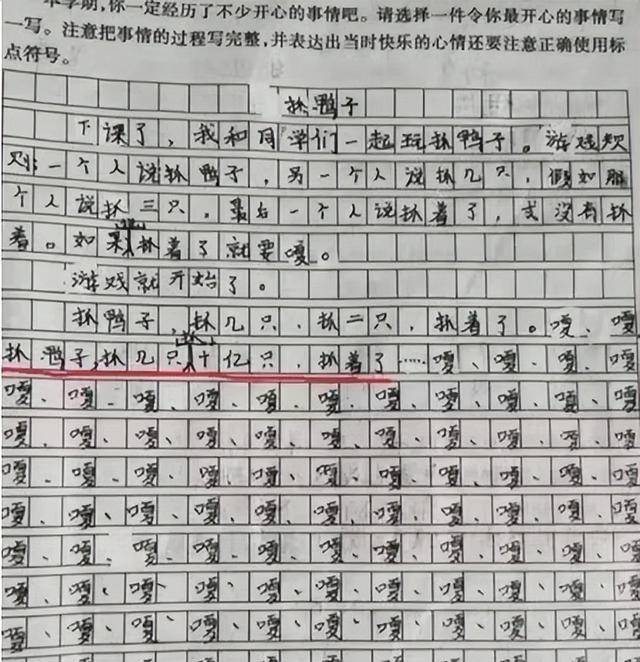 本学期,你一定经历了不少开心的事情吧。请选择一件令你最开心的事情写
一写。注意把事情的过程写完整,并表达出当时快乐的心情还要注意正确使用标
点符号。
抓鸭子
下课了，我和同学们一起玩抓鸭子。游戏规
则：一个人说抓鸭子，另一个人说抓几只，假如那
个人说抓三只。最后一个人说抓着了，或没有抓
着。如果抓着了就要嘎。
游戏就开始了。
抓鸭子，抓几只，抓二只，抓着了。嘎、嘎
抓鸭子,抓几只抓十亿只，抓着了……嘎、嘎、嘎、嘎
嘎、嘎、嘎、嘎、嘎、嘎、嘎、嘎、嘎、嘎、嘎
嘎、嘎、嘎、嘎、嘎、嘎、嘎、嘎、嘎、嘎、嘎
嘎、嘎、嘎、嘎、嘎、嘎、嘎、嘎、嘎、嘎、嘎
嘎、嘎、嘎、嘎、嘎、嘎、嘎、嘎、嘎、嘎、嘎
嘎、嘎、嘎、嘎、嘎、嘎、嘎、嘎、嘎、嘎、嘎
嘎、嘎、嘎、嘎、嘎、嘎、嘎、嘎、嘎、嘎、嘎
嘎、嘎、嘎、嘎、嘎、嘎、嘎、嘎、嘎、嘎、嘎